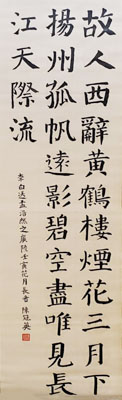 故人西辭黃鶴樓煙花三月下
揚州孤帆遠影碧空盡唯見長
江天際流
李白送孟浩然之廣陵壬寅花月長書 陳冠英